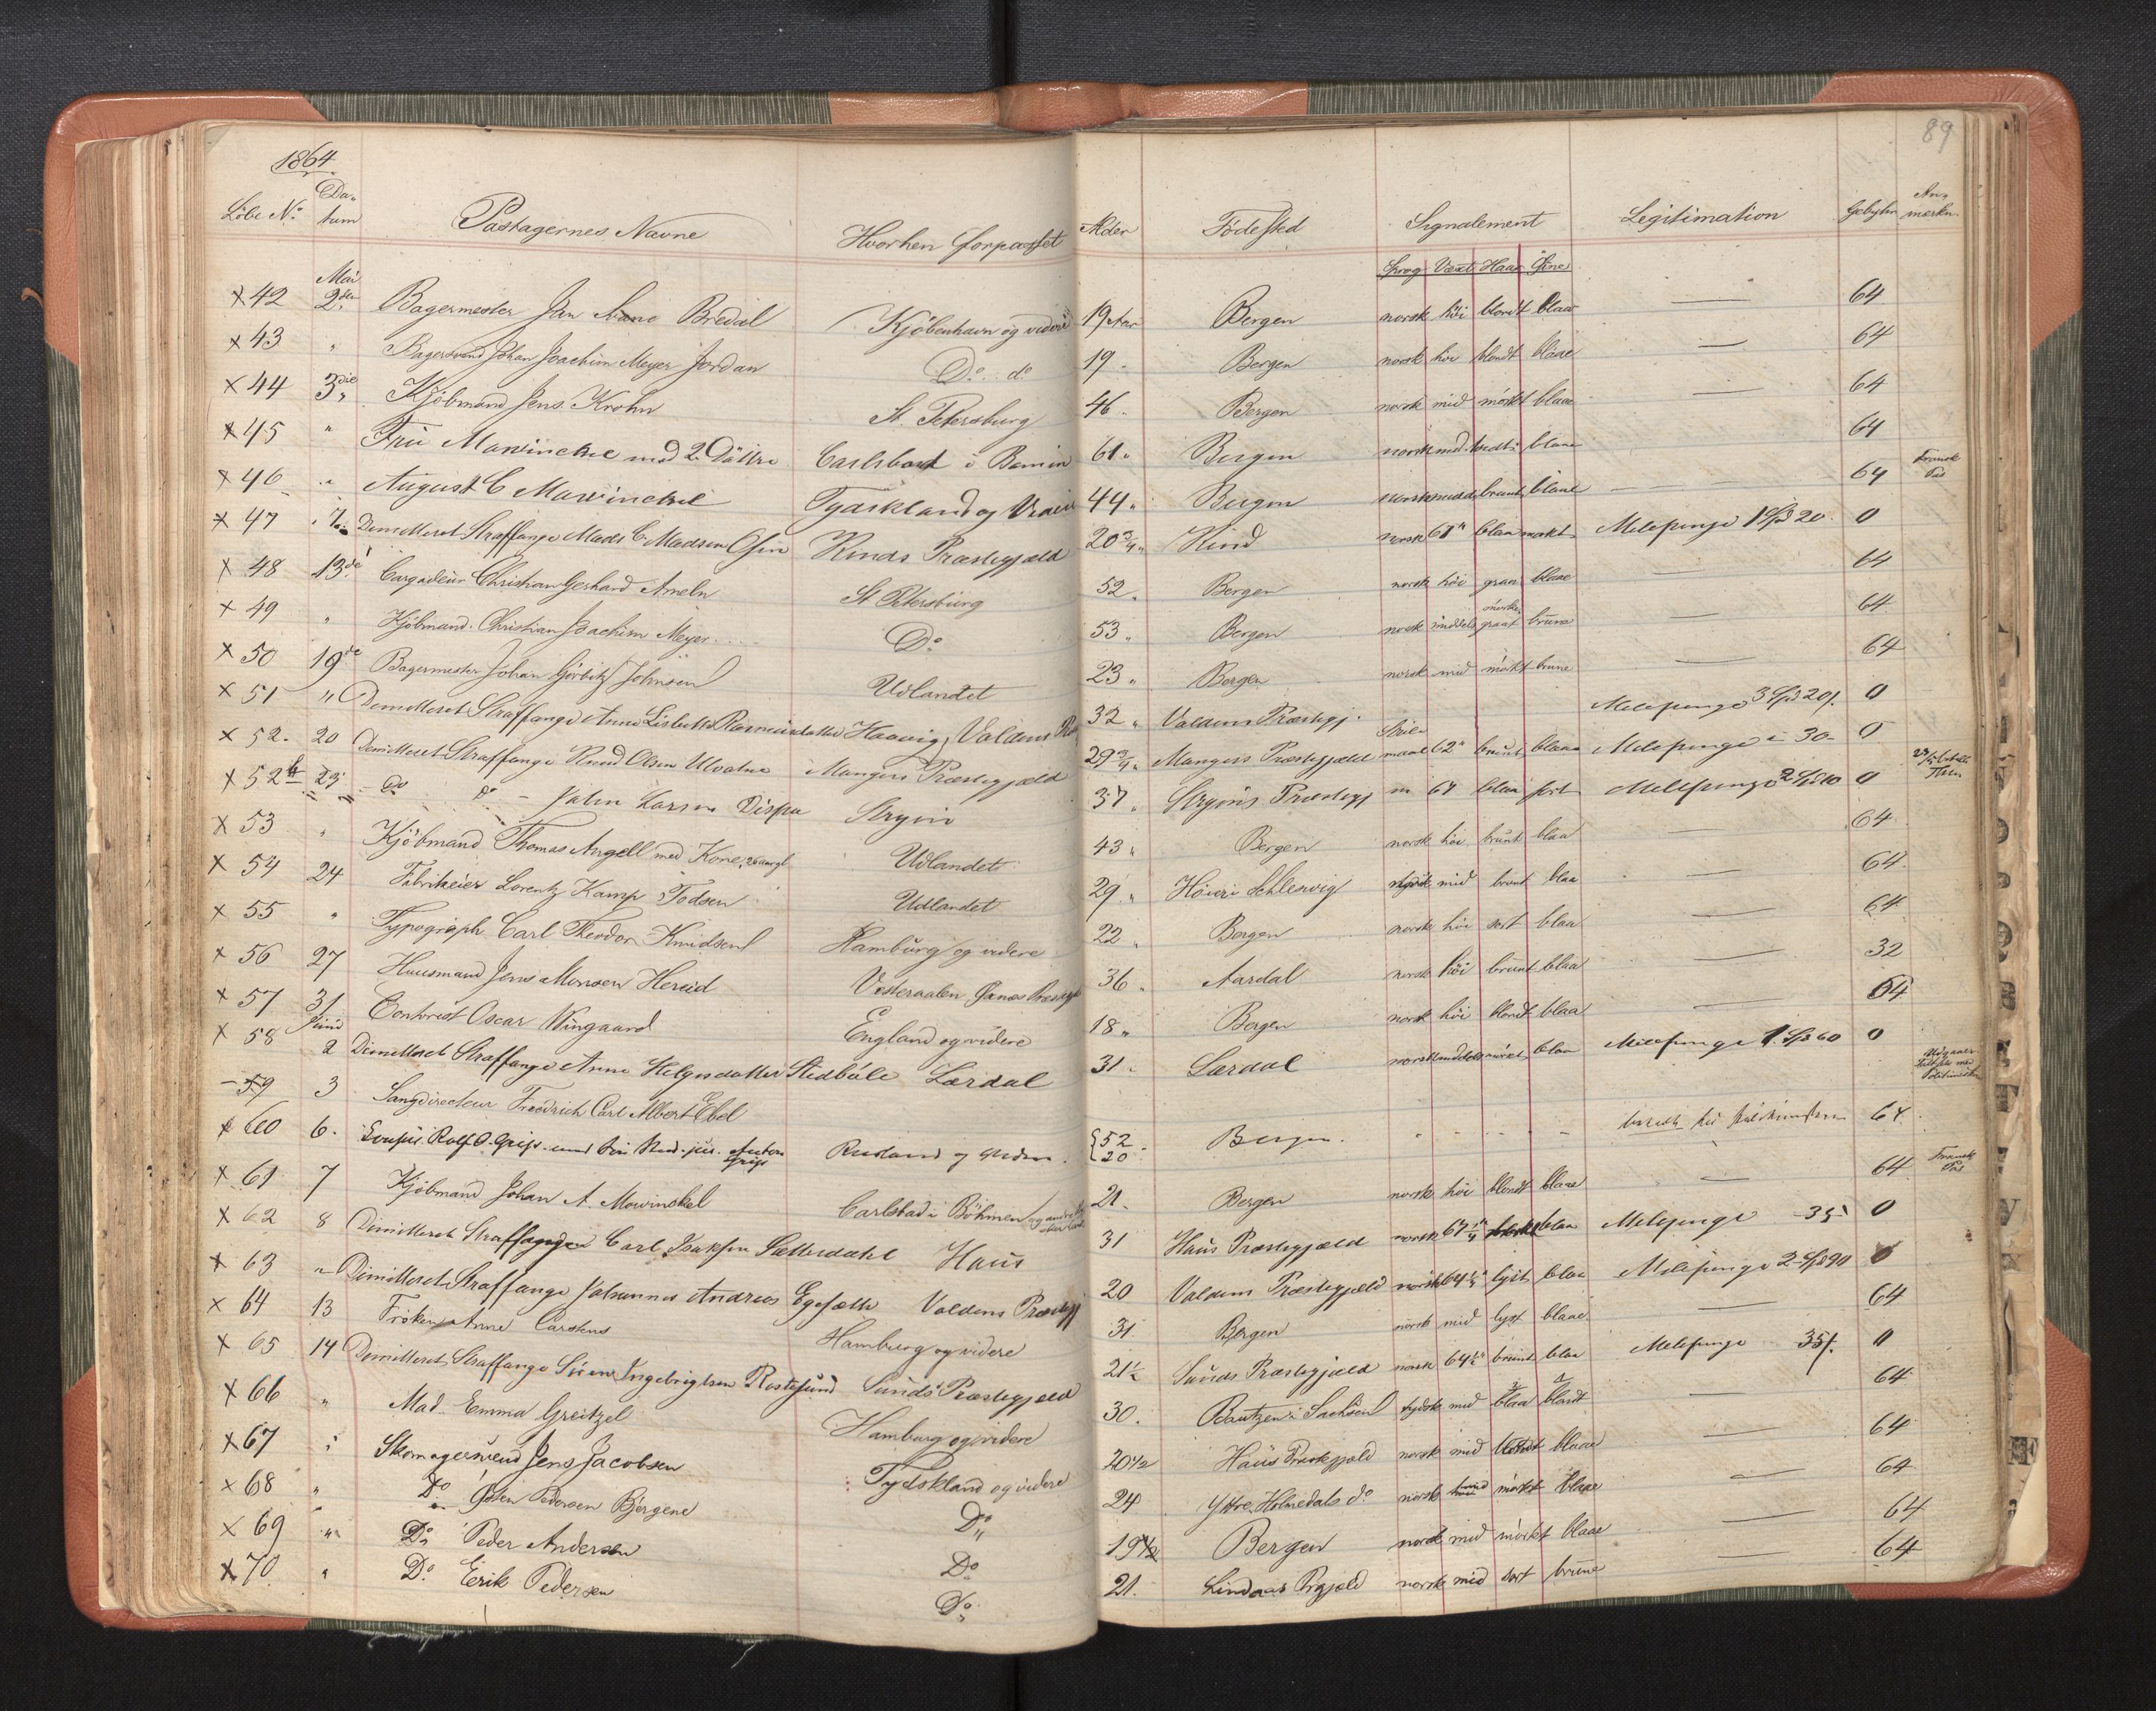 89
1864
Löbe No. Datum Passagernes Navne Hvorhen forpasset Alder Födested Signalement Legitimation Gebyhr Anmerkn.
Sprog Væxt Haar Öine
Mai
x 42 2den Bagermester Jan Bredal Kjöbenhavn og videre 19 Aar Bergen norsk höi blondt blaae — 64
x 43 " Bagersvend Johan Joachim Meyer Jordan Do. do. 19 Bergen norsk höi blondt blaae — 64
x 44 3die Kjöbmand Jens Krohn St. Petersburg 46 Bergen norsk mid mörkt blaae — 64
x 45 " Fru Mowinckel med 2 Döttre Carlsbad i 61 " Bergen norsk mid blaae 64
x 46 " August C Mowinckel Tydskland og 44 " Bergen norsk middels brunt blaae — 64 Fransk Pas
x 47 " 7 Demitteret Straffange Mads C. Madsen Kinds Præstegjæld 20 3/4 " Kind norsk 61" blaa mørkt Milepenge 1 Spd 20 0
x 48 13de Cargadeur Christian Gerhard Ameln St Petersburg 52 " Bergen norsk höi graa blaae — 64
x 49 " Kjöbmand Christian Joachim Meyer Do 53 " Bergen norsk middels mörke graat brune — 64
x 50 19de Bagermester Johan Görbitz Johnsen Udlandet 23 " Bergen norsk mid mörkt brune — 64
x 51 " Demitteret Straffange Anne Lisbeth Rasmusdatter Haavig, Voldens 32 " Voldens Præstegj. Milepenge 3 Spd 20 0
x 52. 20 Demitteret Straffange Knud Olsen Ulvatne Mangers Præstegjæld 29 3/4 " Mangers Præstegjæld Strilemaal 62" brunt blaae Milepenge " 30 0
x 52b 23 do do – John Larsen Dispen Stryin 37 " Stryins Præstegj n 67 blaa sort Milepenge 2 Spd 10 0
x 53 " Kjöbmand Thomas Angell med Kone, 26 aar gl Udlandet 43 " Bergen norsk höi brunt blaa — 64
x 54 24 Fabrikeier Lorentz Kamp Todsen Udlandet 29 " Höier i Schlesvig tydsk mid brunt blaa — 64
x 55 " Typograph Carl Theodor Knudsen Hamburg og videre 22 " Bergen norsk höi sort blaa — 64
x 56 27 Huusmand Jens Monsen Hereid Vesteraalen Præstegj 36 " Aardal norsk höi brunt blaa — 32
x 57 31 Contorist Oscar Wingaard England og videre 18 " Bergen norsk höi blondt blaa — 64
Juni
x 58 2 Dimitteret Straffange Anne Helgesdatter Stedbale Lærdal 31 " Lærdal norsk middels mörkt blaa Milepenge 1 Spd 60 0
– 59 3 Sangdirecteur Freedrich Carl Albert Ebel
x 60 6. Rolf O. Grip med Søn Stud. jur. Anton Grip Rusland og videre {52 20 Bergen - - - - 64
x 61 7 Kjöbmand Johan A. Mowinckel Carlsbad i Böhmen 21. Bergen norsk höi blondt blaae — 64 Fransk Pas
x 62 8 Dimitteret Straffange Carl Isaksen Sætterdahl Haus 31 Haus Præstegjæld norsk 67 1/4" blaa Milepenge — 35 0
x 63 " Dimitteret Straffange Johannes Andreas Egesæth Voldens Præstegj 20 Voldens Præstegjæld norsk 64 1/2" lyst blaa Milepenge 2 Spd 90 0
x 64 13 Fröken Anne Carstens Hamburg og videre 31 Bergen norsk mid lyst blaae — 64
x 65 14 Dimitteret Straffange Sören Ingebrigtsen Rostesund Sunds Præstegjeld 21 1/2 Sunds Præstegjæld norsk 64 1/2" brunt blaa Milepenge 35 0
x 66 " Mad. Emma Greitzel Hamburg og videre 30. Bautzen i Sachsen tydsk mid blaa blondt — 64
x 67 " Skomagersvend Jens Jacobsen Tydskland og videre 20 1/2 Haus Præstegjæld norsk mid blondt blaae — 64
x 68 " Do Östen Pedersen Bjergene Do 24 Yttre Holmedals do norsk mid mörkt blaae — 64
x 69 " Do Peder Andersen Do 19 1/2 Bergen norsk mid mörkt blaae — 64
x 70 " Do Eerik Pedersen Do 21. Lindaas Prgjæld norsk mid sort brune — 64